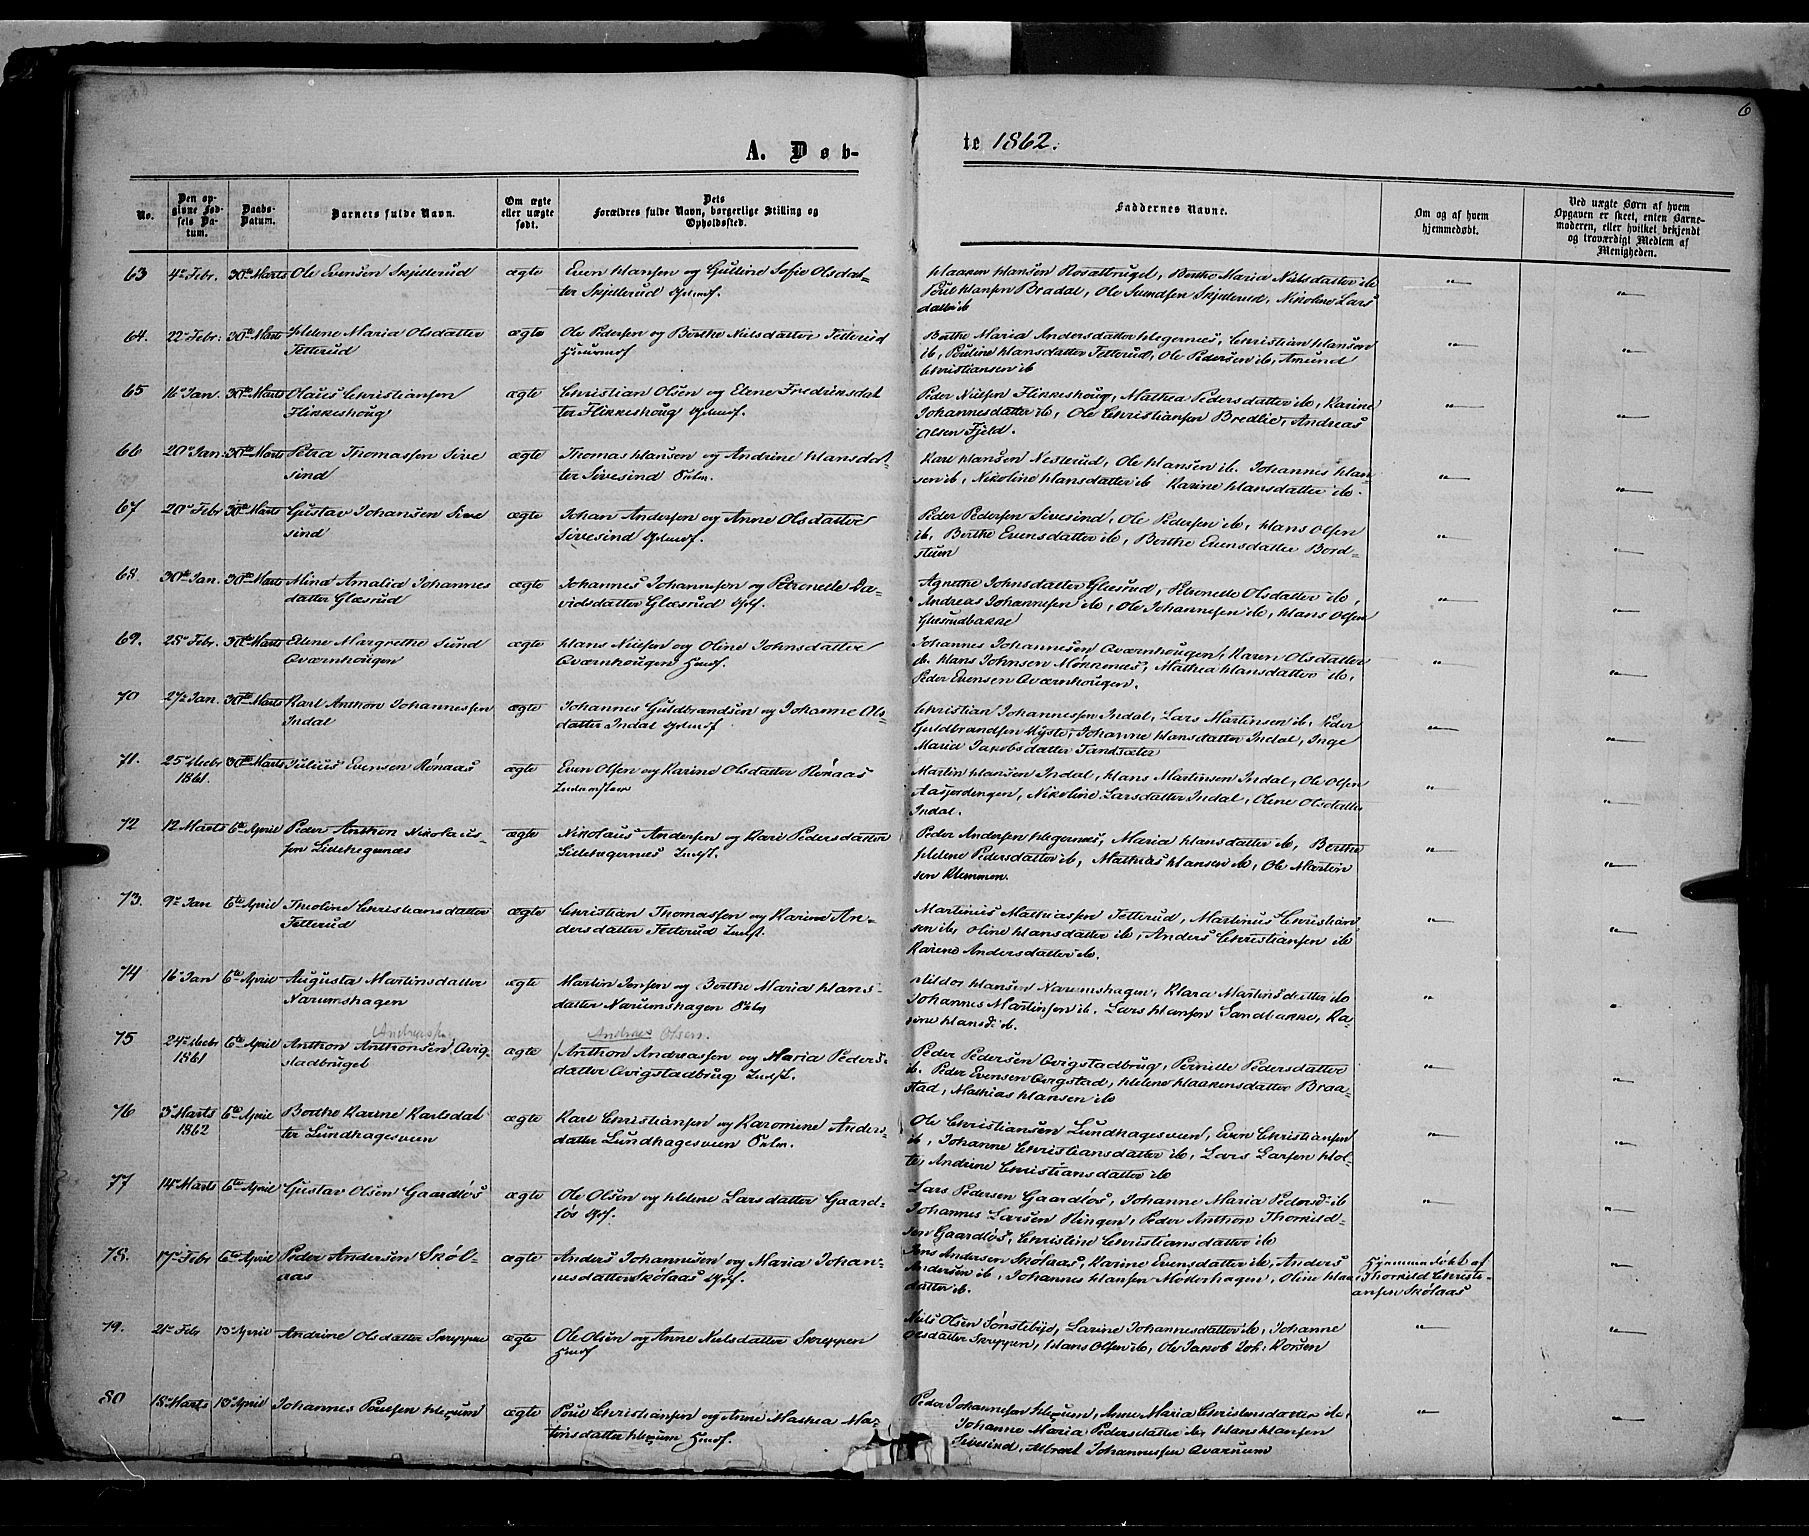 6
A. Døb-
te 1862.
No.
Den op-
givne Fød-
sels Da-
tum.
Daabs-
Datum.
Barnets fulde Navn.
Om ægte
eller uægte
født.
Dets
Forældres fulde Navn, borgerlige Stilling og
Opholdssted.
Faddernes Navne.
Om og af hvem
hjemmedøbt.
Ved uægte Børn af hvem
Opgaven er skeet, enten Barne-
moderen, eller hvilket bekjendt
og troværdigt Medlem af
Menigheden.
63 4de Febr. 30te Marts Ole Evensen Skjellerud ægte Even Hansen og Gulline Sofie Olsdat-
ter Skjellerud
Haaken Hansen Rosattrugel, Berthe Maria Nilsdatter ib
Poul Hansen Bradal, Ole Amundsen Skjellerud, Nikoline Lars
datter ib
64. 22de Febr: 30te Marts Helene Maria Olsdatter ægte Ole Pedersen og Berthe Nilsdatter Fetterud
Fetterud
Berthe Maria Andersdatter Hegernes, Christian Hansen
ib, Pouline Hansdatter Fetterud, Ole Pedersen ib, Amund
Christiansen ib
65 16de Jan. 30te Marts Olaus Christiansen ægte Christian Olsen og Elene Fredriksdat
Flikkeshoug ter Flikkeshoug
Peder Nielsen Flikkeshoug, Mathea Pedersdatter ib, Karine
Johannesdatter ib, Ole Christiansen Bredlie, Andreas
Olsen Fjeld.
66 20de Jan. 30te Marts Petra Thomassen Sive ægte Thomas Hansen og Andrine Hansdat
sind ter Sivesind
Karl Hansen Nesterud, Ole Hansen ib. Johannes Han-
sen ib, Nikoline Hansdatter ib Karine Hansdatter ib.
67 20de Febr 30te Marts Gustav Johansen Sive ægte Johan Andersen og Anne Olsdatter
sind Sivesind
Peder Pedersen Sivesind, Ole Pedersen ib, Hans Olsen
ib, Berthe Evensdatter ib, Berthe Evensdatter Bord-
68. 30te Jan. 30te Marts Mina Amalia Johannes ægte Johannes Johannesen og Petronelle Da-
datter Glæsrud vidsdatter Glæsrud
Agnethe Johnsdatter Glæsrud, Petronelle Olsdatter ib,
Andreas Johannesen ib, Ole Johannesen ib, Hans Olsen
Glæsrudbakke
69. 28de Febr. 30te Marts Elene Margrethe Lund ægte Hans Nielsen og Oline Johnsdatter
Qværnhougen Qværnhougen
Johannes Johannesen Qværnhougen, Karen Olsdatter
ib. Hans Johnsen Møkkenes, Mathea Hansdatter ib,
Peder Evensen Qværnhougen.
70 27de Jan. 30te Marts Karl Anthon Johannessen ægte Johannes Guldbrandsen og Johanne Ols-
Indal datter Indal
Christian Johannessen Indal, Lars Martinsen ib, Peder
Guldbrandsen Myste, Johanne Hansdatter Indal, Inge
Maria Jakobsdatter Tandsæter
71. 25de Decbr 30te Marts Julius Evensen Rønaas ægte Even Olsen og Karine Olsdatter Rønaas
1861.
Martin Hansen Indal, Hans Martinsen Indal, Ole Olsen
Aasjordengen, Nikoline Larsdatter Indal, Oline Olsdatter
Indal.
72 12 Marts 6te April Peder Anthon Nikolaus- ægte Nikolaus Andersen og Kari Pedersdatter
sen Lillehegernæs Lillehegernes Indst.
Peder Andersen Hegernæs, Maria Hansdatter ib, Berthe
Helene Pedersdatter ib, Mathias Hansen ib, Ole Martin
sen Klemmen.
73. 9de Jan 6te April Theoline Christiansdatter ægte Christian Thomassen og Karine An-
Fetterud dersdatter Fetterud Indst.
Martinus Mathiassen Fetterud, Martinus Christian
sen ib, Oline Hansdatter ib, Anders Christiansen ib
Karine Andersdatter ib.
74 16de Jan 6te April Augusta Martinsdatter ægte Martin Jensen og Berthe Maria Hans-
Narumshagen datter Narumshagen
Hildor Hansen Narumshagen, Klara Martinsdatter ib
Johannes Martinsen ib. Lars Hansen Sandbakke, Ka-
rine Hansd: ib.
Andreassen Andreas Olsen.
75 24de Decbr 6te April Anthon Anthonsen Qvig ægte Anthon Andreassen og Maria Peders-
1861 stadbruget datter Qvigstadbrug Indst.
Peder Pedersen Qvigstadbrug, Pernille Pedersdatter
ib. Peder Evensen Qvigstad, Helene Haakensdatter Braa-
stad, Mathias Hansen ib
76 3de Marts 6te April Berthe Karine Karlsdat ægte Karl Christiansen og Karomine Anders
1862 ter Lundhagesveen datter Lundhagesveen
Ole Christiansen Lundhagesveen, Even Christiansen
ib, Johanne Christiansdatter ib, Lars Larsen Hol-
te, Andrine Christiansdatter ib
77 14de Marts 6te April Gustav Olsen Gaardløs ægte Ole Olsen og Helene Larsdatter Gaard-
løs
Lars Pedersen Gaardløs, Johanne Maria Pedersd: ib
Johannes Larsen Ringen, Peder Anthon Thorkild-
sen Gaardløs, Christine Christiansdatter ib
78. 17de Febr 6te April Peder Andersen Skøl- ægte Anders Johannesen og Maria Johan-
aas nesdatter Skølaas
Jens Andersen Skølaas, Karine Evensdatter ib, Anders
Andersen ib, Johannes Hansen Møderhagen, Oline Hans
datter ib.
Hjemmedøbt af
Thorkild Christi-
ansen Skølaas
79. 21de Febr 13de April Andrine Olsdatter Skreppen ægte Ole Olsen og Anne Nielsdatter Skreppen
Niels Olsen Sønsteby, Larine Johannesdatter ib, Johanne
Olsdatter Skreppen, Hans Olsen ib, Ole Jakob Joh: Korsen
80 18de Marts 13de April Johannes Poulsen ægte Poul Christiansen og Anne Mathea Ma-
tinsdatter
Peder Johannesen Anne Maria Christensdatter ib,
Johanne Maria Pedersdatter ib, Hans Hansen
Sivesind, Albret Johannessen Qvarnum